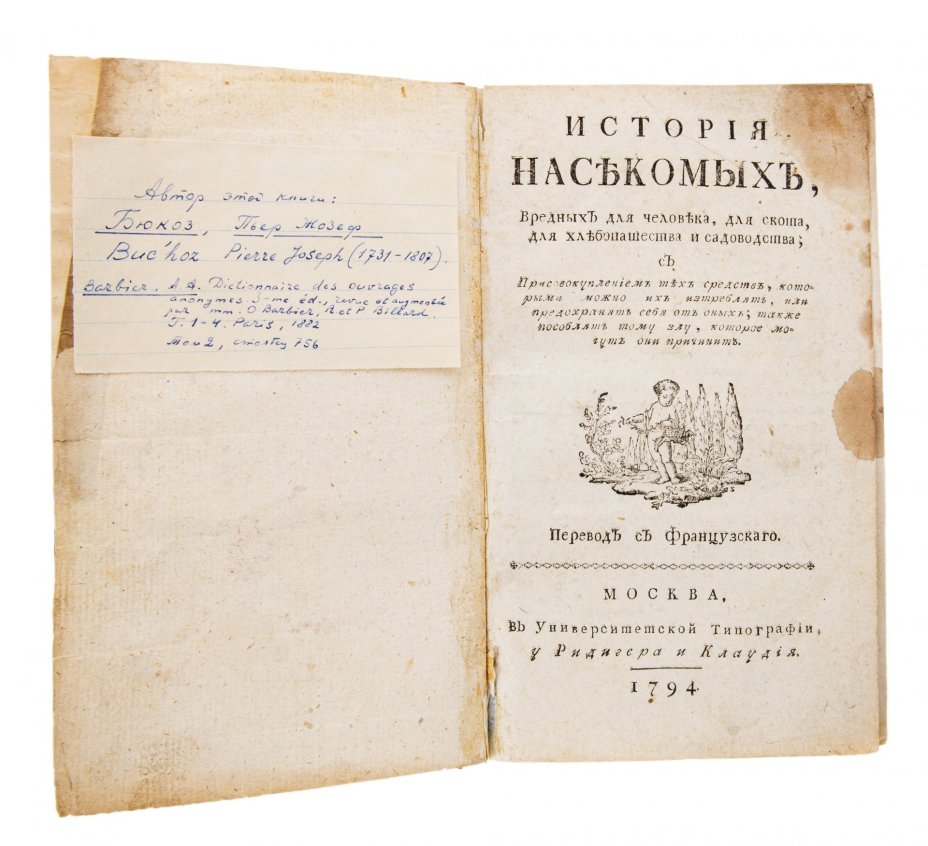 Автор этой книги:
Бюкоз, Пьер Жозеф
Buc'hoz Pierre Joseph (1731-1807).
Barbier, A A. Dictionnaire des ouvrages
anonymes. 3-me éd., revue et augmentée
par mm. O Barbier, R et P Billard.
T. 1-4. Paris, 1882
Том 2, столбец 756
ИСТОРІЯ
НАСѢКОМЫХЪ,
Вредныхъ для человѣка, для скота,
для хлѣбопашества и садоводства;
съ
Присовокупленіемъ тѣхъ средствъ, кото-
рыми можно ихъ истреблять, или
предохранять себя отъ оныхъ; также
пособлять тому злу, которое мо-
гутъ они причинить.
Переводъ съ Французскаго.
МОСКВА,
Въ Университетской Типографіи,
у Ридигера и Клаудія.
1794